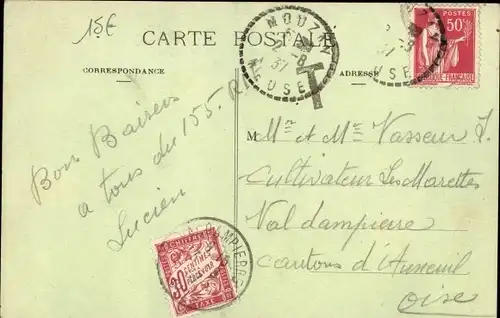 15€
CARTE POSTALE
CORRESPONDANCE
ADRESSE
MOUZAY
8
37
MEUSE
T
POSTES
50c
Bon Baisers
a tous du 155. R.I
Lucien
Mr et Me Vasseur L.
Cultivateur Les Marettes
Val dampierre
cantons d'Auneuil
Oise
CHIFFRE
30
CENTIMES
A PERCEVOIR
TAXE
DAMPIERRE